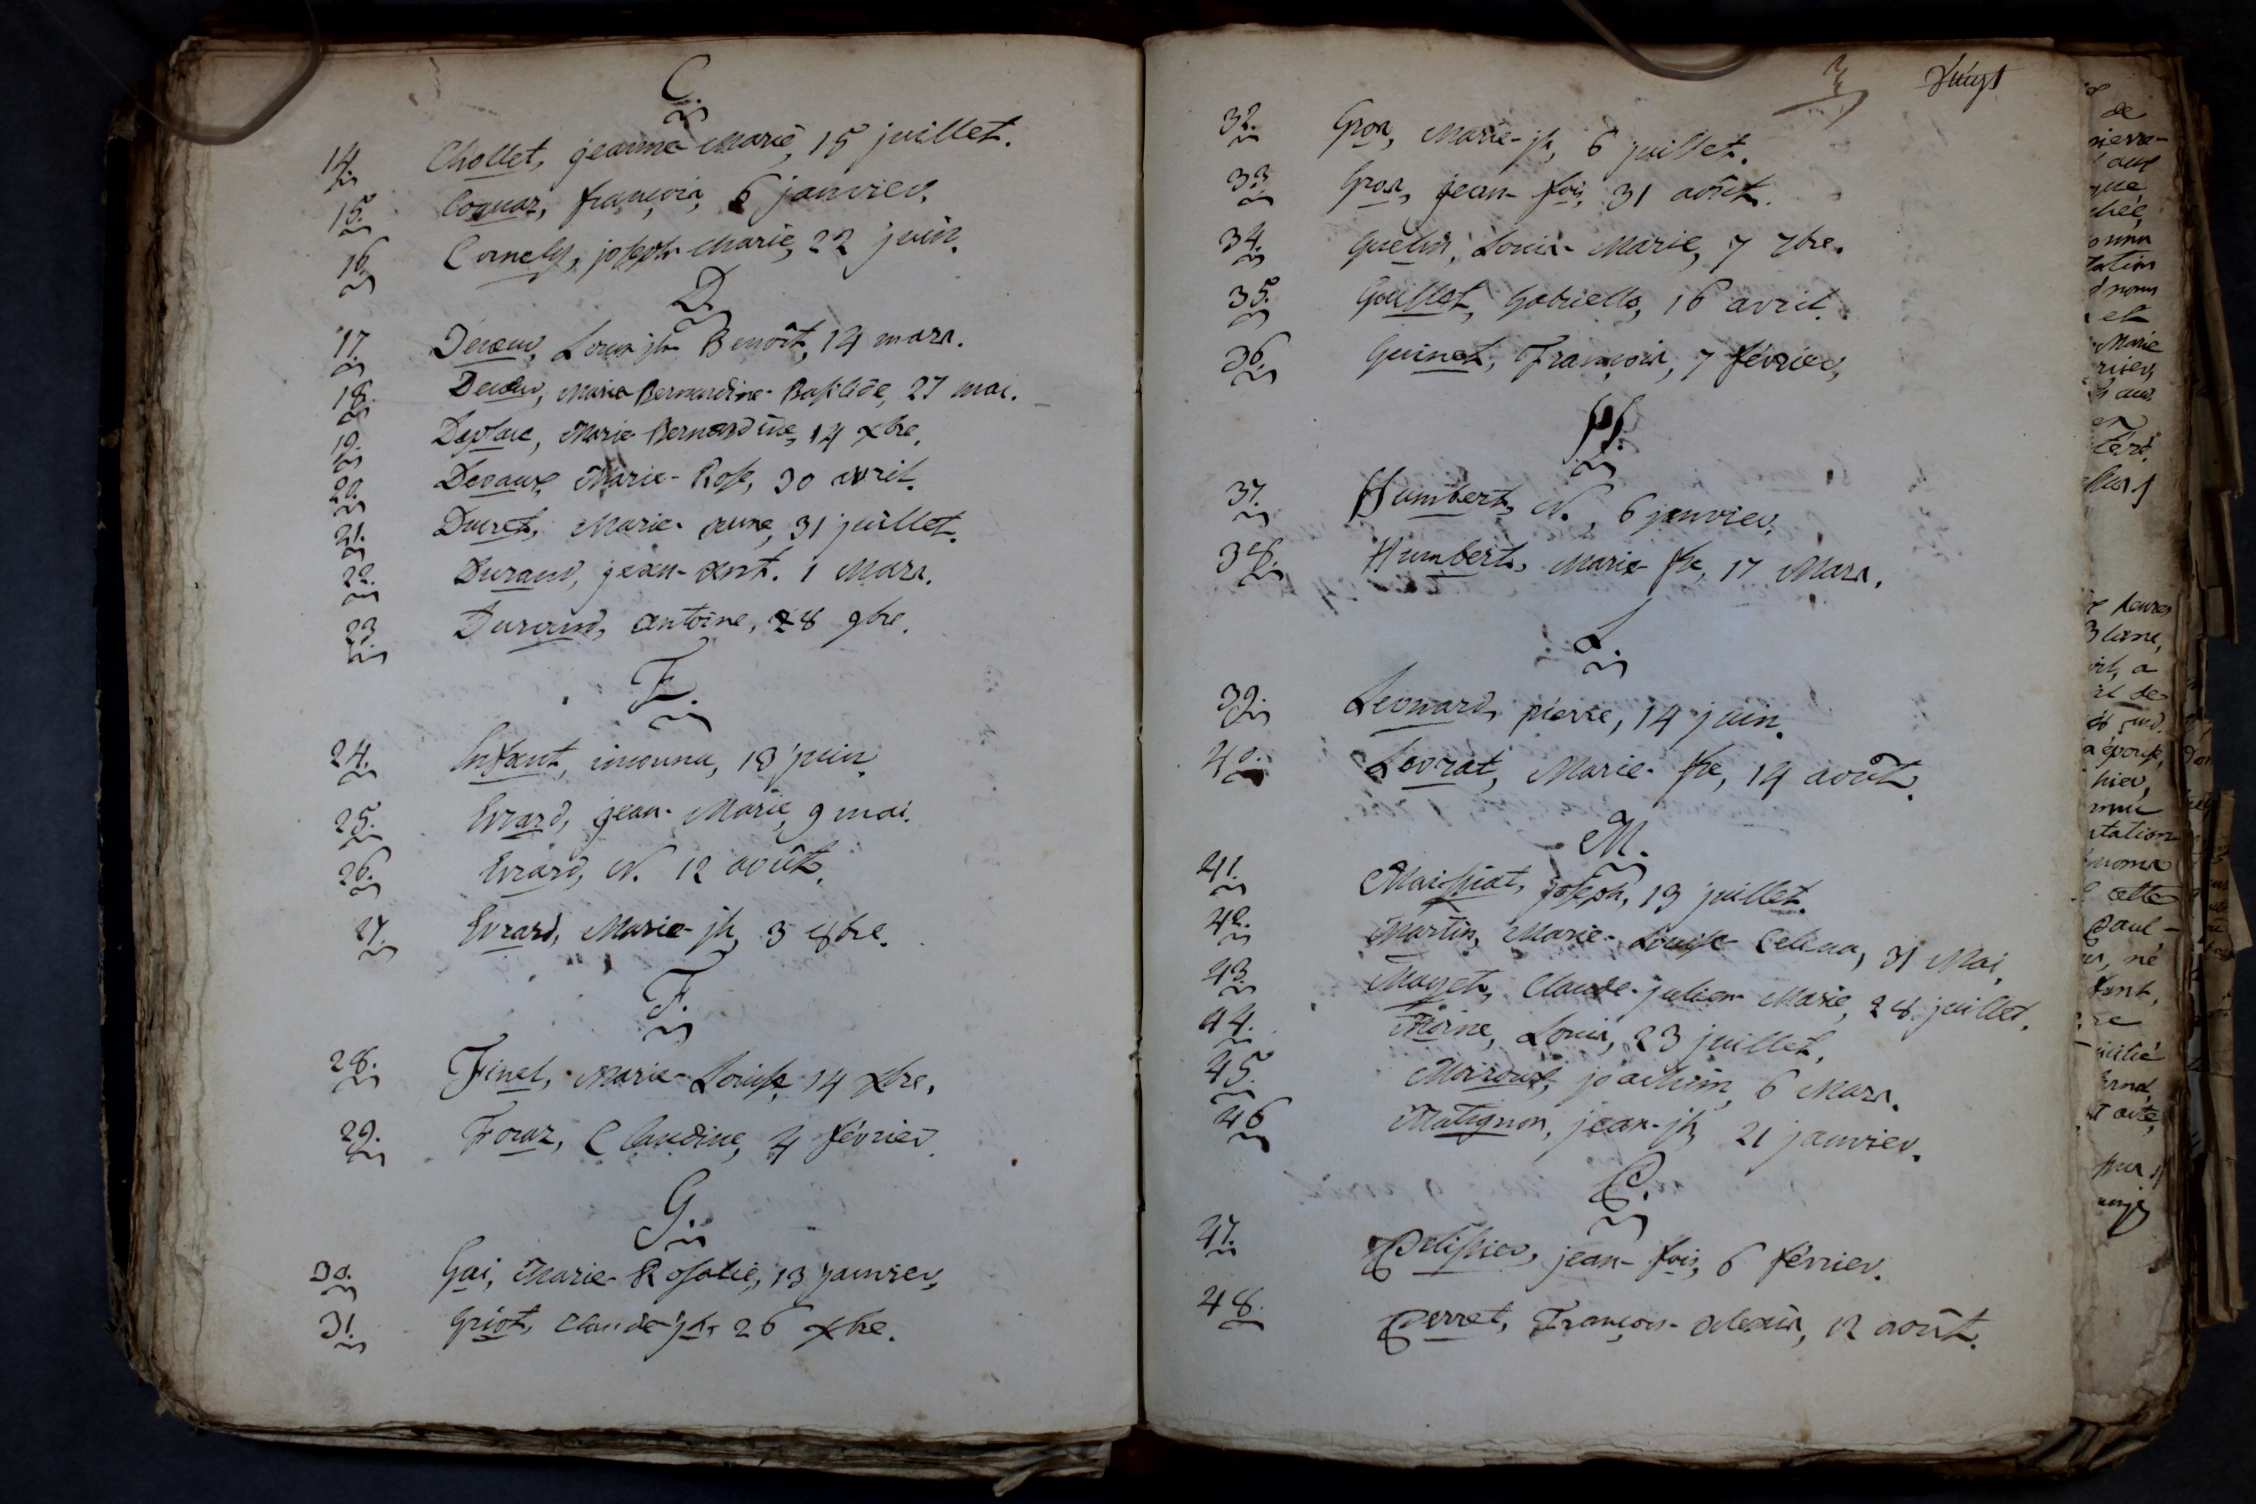 C.
14. Chollet, jeanne Marie, 15 juillet.
15. Cognaz, françois, 6 janvier.
16. Cornely, joseph-Marie, 22 juin.
D.
17. Decoeur, Louis jh Benoît, 14 mars.
18. Decoeur, Marie Bernardine-Basilide, 27 mai.
19. Marie Bernardine, 14 xbre.
20. Devaux, Marie-Rose, 30 avril.
21. Ducret, Marie-anne, 31 juillet.
22. Durand, jean-ant. 1 Mars.
23. Durand, antoine, 28 9bre.
E.
24. Enfant, inconnu, 18 juin.
25. Evrard, jean-Marie, 9 mai.
26. Evrard, N. 12 août.
27. Evrard, Marie-jh, 3 8bre.
F.
28. Finet, Marie-Louise 14 xbre.
29. Foraz, Claudine, 4 février.
G.
30. Gai, Marie-Rosalie, 13 janvier.
31. Griot, Claude jh, 26 xbre.
3
32. Gros, Marie-jh, 6 juillet.
33. Gros, jean-fois, 31 août.
34. Guelin, Louis-Marie, 7 7bre.
35. Guillet, Gabrielle, 16 avril.
36. Guinet, François, 7 février.
H.
37. Humbert, N., 6 janvier.
38. Humbert, Marie fse, 17 Mars.
L.
39. Leonard, pierre, 14 juin.
40. Levrat, Marie-fse, 14 août.
M.
41. Maissiat, joseph, 13 juillet.
42. Martin, Marie-Louise Celina, 31 Mai.
43. Mugret, Claude-julien Marie, 28 juillet.
44. Moine, Louis, 23 juillet.
45. joachim, 6 Mars.
46 Matignon, jean-jh, 21 janvier.
P.
47. Pelissier, jean-fois, 6 février.
48. Perret, François-alexis, 12 août.